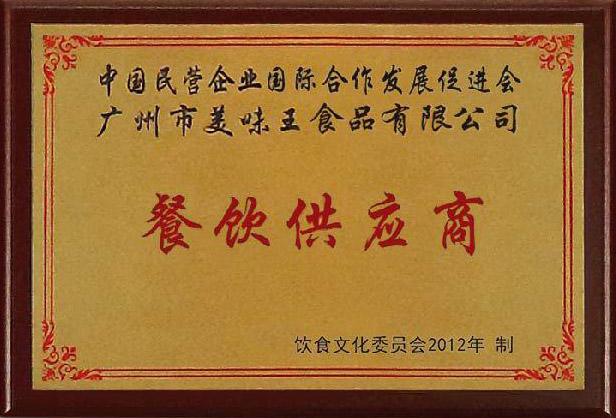 中国民营企业国际合作发展促进会
广州市美味王食品有限公司
餐饮供应商
饮食文化委员会2012年 制